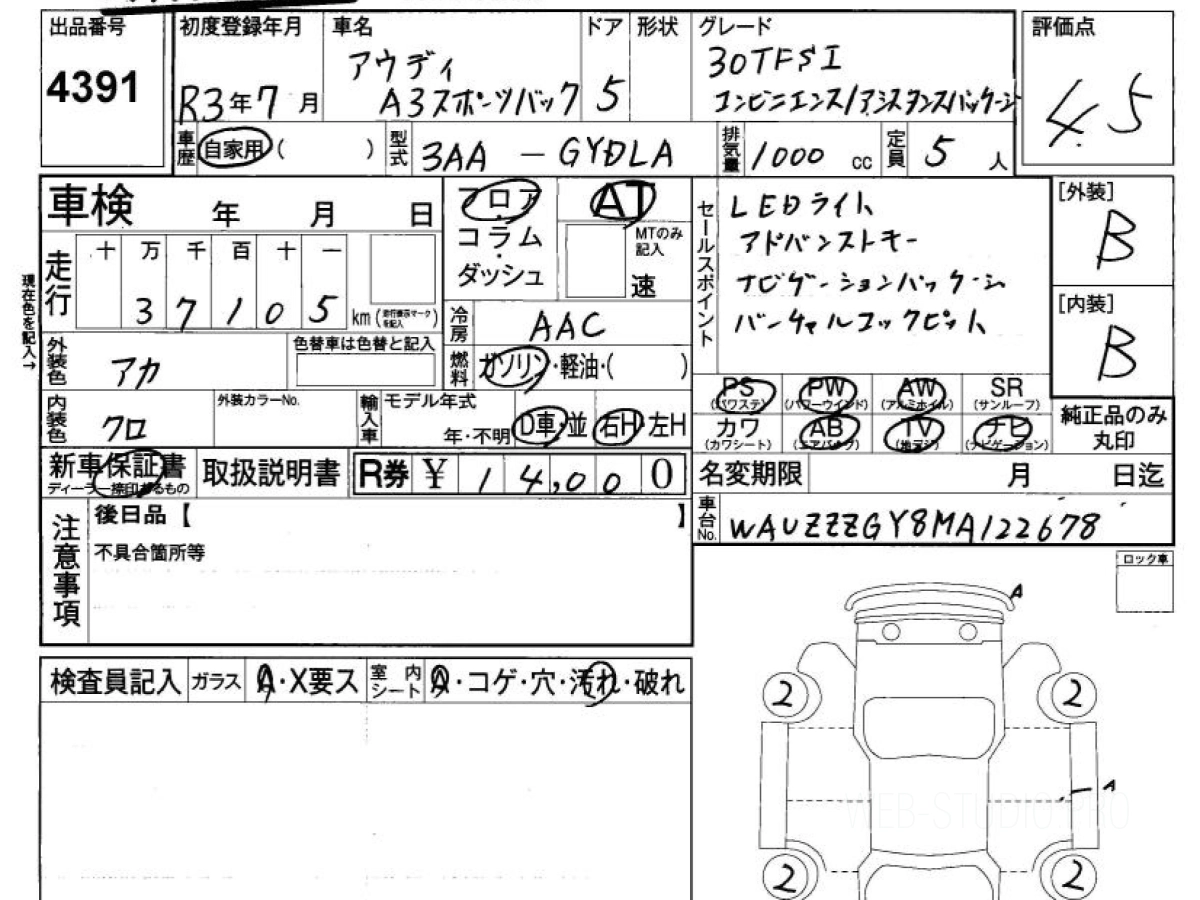 出品番号
4391
初度登録年月
R3年7月
車名
アウディ
A3スポーツバック
ドア
5
形状
グレード
30TFSI
コンビニエンス/アシスタンスパッケージ
評価点
4.5
車歴
自家用 ( )
型式
3AA - GYDLA
排気量
1000 cc
定員
5 人
車検 年 月 日
フロア
コラム
ダッシュ
AT
MTのみ記入
速
セールスポイント
LEDライト
アドバンストキー
ナビゲーションパッケージ
バーチャルコックピット
[外装]
B
[内装]
B
現在色を記入→
走行
十 万 千 百 十 一
3 7 1 0 5
km (走行表示マークを記入)
冷房
AAC
外装色
アカ
色替車は色替と記入
燃料
ガソリン・軽油・( )
内装色
クロ
外装カラーNo.
輸入車
モデル年式
年・不明
D車・並
右H・左H
PS (パワステ)
PW (パワーウインド)
AW (アルミホイル)
SR (サンルーフ)
カワ (カワシート)
AB (エアバック)
TV (地デジ)
ナビ (ナビゲーション)
純正品のみ丸印
新車保証書
ディーラー捺印あるもの
取扱説明書
R券 ¥ 14,000
名変期限 月 日迄
車台No.
WAUZZZGY8MA122678
注意事項
後日品【 】
不具合箇所等
ロック車
検査員記入
ガラス
A・X要ス
室内シート
A・コゲ・穴・汚れ・破れ
A
2
2
A
2
2
WEB-STUDIO.PRO